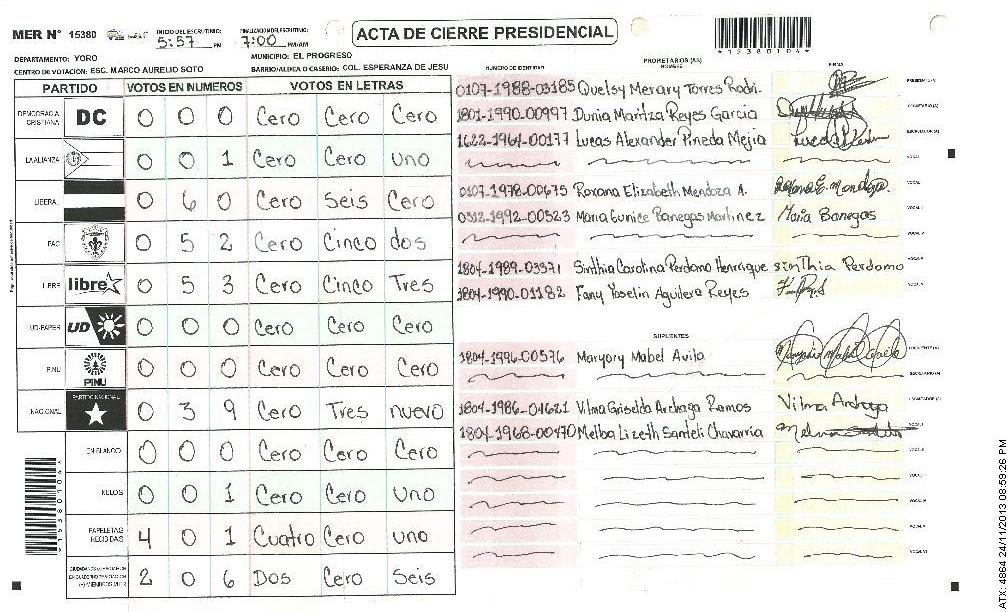 MER N° 15380 INICIO DEL ESCRUTINIO: 5:57 PM FINALIZACION DEL ESCRUTINIO: 7:00 PM/AM ACTA DE CIERRE PRESIDENCIAL
*15380104*
DEPARTAMENTO: YORO MUNICIPIO: EL PROGRESO
CENTRO DE VOTACION: ESC. MARCO AURELIO SOTO BARRIO/ALDEA O CASERIO: COL. ESPERANZA DE JESU
PARTIDO VOTOS EN NUMEROS VOTOS EN LETRAS
DEMOCRACIA CRISTIANA DC 0 0 0 Cero Cero Cero
LA ALIANZA 0 0 1 Cero Cero uno
LIBERAL 0 6 0 Cero Seis Cero
PAC 0 5 2 Cero Cinco dos
LIBRE libre 0 5 3 Cero Cinco Tres
UD-FAPER UD 0 0 0 Cero Cero Cero
PINU PINU 0 0 0 Cero Cero Cero
NACIONAL PARTIDO NACIONAL 0 3 9 Cero Tres nuevo
EN BLANCO 0 0 0 Cero Cero Cero
NULOS 0 0 1 Cero Cero uno
PAPELETAS RECIBIDAS 4 0 1 Cuatro Cero uno
2 0 6 Dos Cero Seis
NUMERO DE IDENTIDAD PROPIETARIOS (AS) NOMBRE FIRMA
0107-1988-03185 Quelsy Merary Torres Rodri. PRESIDENTE(A)
1801-1990-00997 Dunia Maritza Reyes Garcia SECRETARIO(A)
1622-1964-00177 Lucas Alexander Pineda Mejia ESCRUTADOR(A)
VOCAL I
0107-1978-00675 Roxana Elizabeth Mendoza A.
0312-1992-00523 Maria Eunice Banegas Martinez Maria Banegas
1804-1989-03371 Sinthia Carolina Perdomo Henrique sinthia Perdomo
1804-1990-01182 Fany Yoselin Aguilera Reyes
SUPLENTES
1804-1996-00576 Maryory Mabel Avila PRESIDENTE(A)
SECRETARIO(A)
1804-1986-04621 Vilma Griselda Archaga Ramos Vilma Archaga ESCRUTADOR(A)
1804-1968-00470 Melba Lizeth Santeli Chavarria
*15380104*
ATX: 4864 24/11/2013 08:59:26 PM